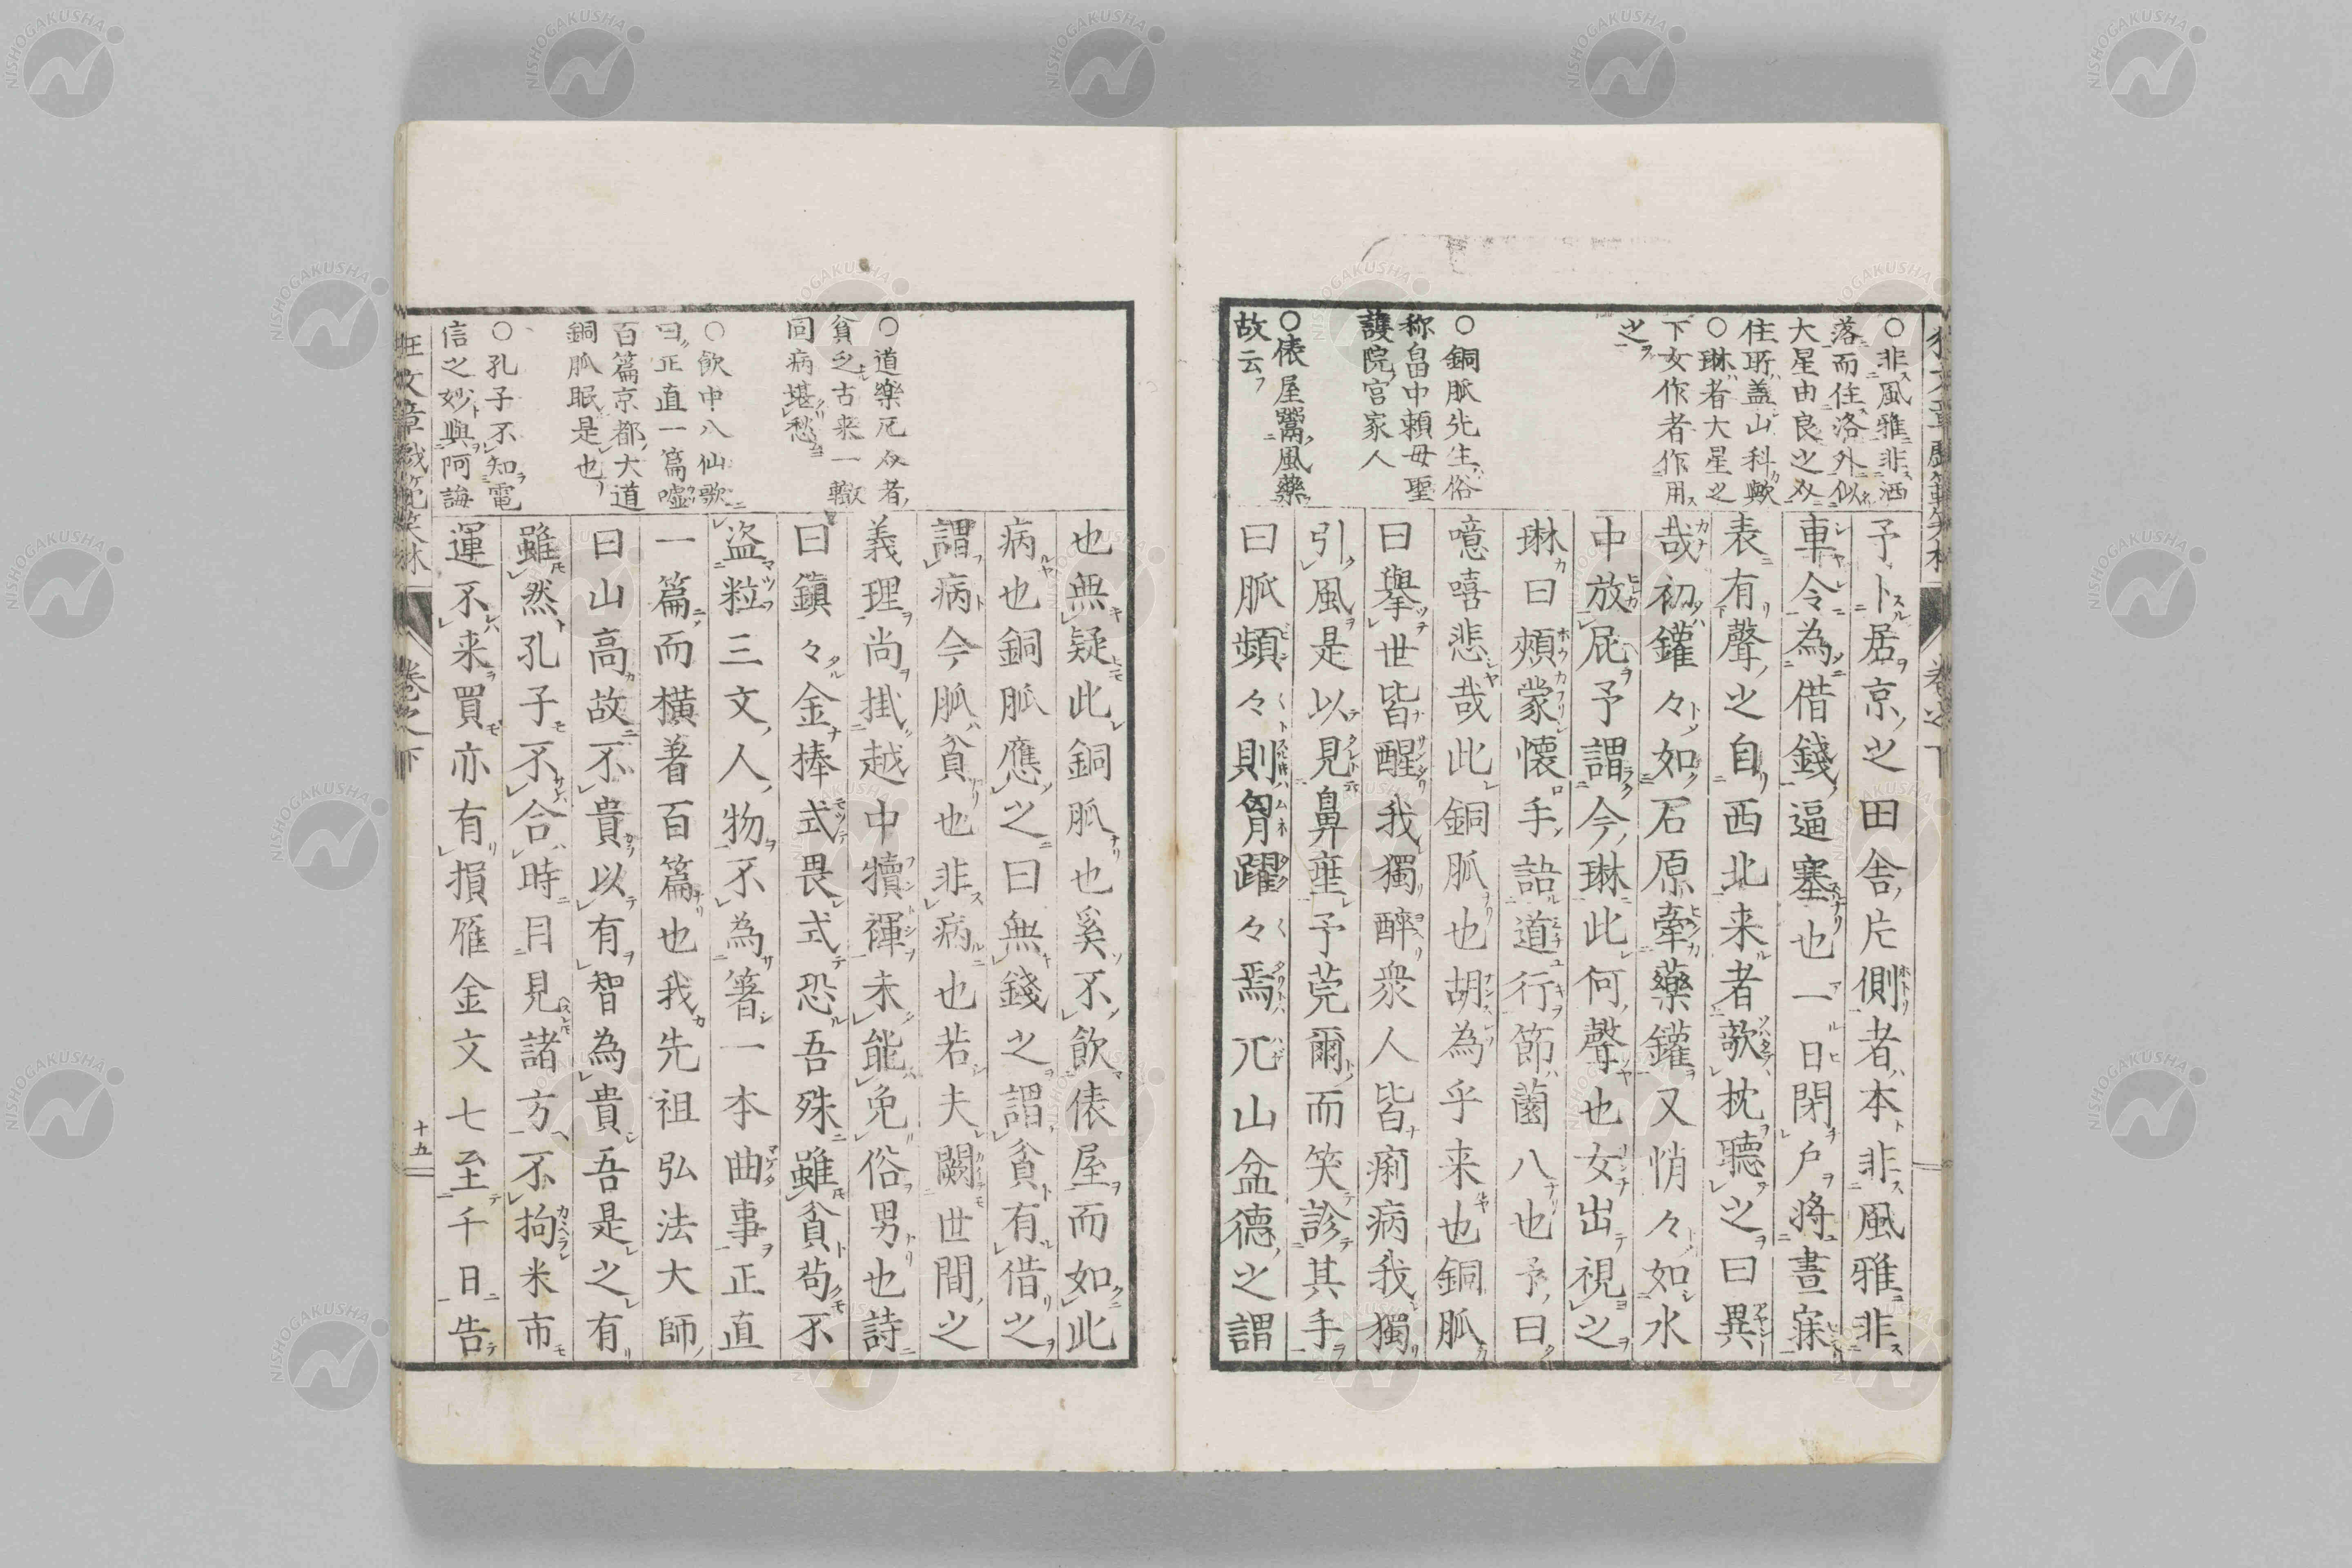 ○非風雅非洒
落而住洛外似
大星由良之介
住所蓋山科歟
○琳者大星之
下女作者作用
之
○銅脈先生俗
称畠中頼母聖
護院宮家人
○俵屋鬻風藥
故云
予卜居京之田舎片側者本非風雅非
車令為借錢逼塞也一日閉戸将晝寐
表有聲之自西北来者欹枕聽之曰異
哉初鑵々如石原牽藥鑵又悄々如水
中放屁予謂今琳此何聲也女出視之
琳曰頰蒙懐手詣道行節薗八也予曰
噫嘻悲哉此銅脈也胡為乎来也銅脈
曰擧世皆醒我獨醉衆人皆痢病我獨
引風是以見鼻垂予莞爾而笑診其手
曰脈頻々則胷躍々焉兀山盆德之謂
也無疑此銅脈也奚不飲俵屋而如此
病也銅脈應之曰無錢之謂貧有借之
謂病今脈貧也非病也若夫闕世間之
義理尚掛越中犢褌未能免俗男也詩
曰鎮々金捧式畏式恐吾殊雖貧苟不
盗粒三文人物不為箸一本曲事正直
一篇而横著百篇也我先祖弘法大師
曰山高故不貴以有智為貴吾是之有
雖然孔子不合時目見諸方不拘米市
運不来買亦有損雁金文七至千日告
○道樂厄介者
貧乏古来一轍
同病堪愁
○飲中八仙歌
曰正直一篇噓
百篇京都大道
銅脈眠是也
○孔子不知電
信之妙與阿誨
狂文章戯範笑林
卷之下
十五